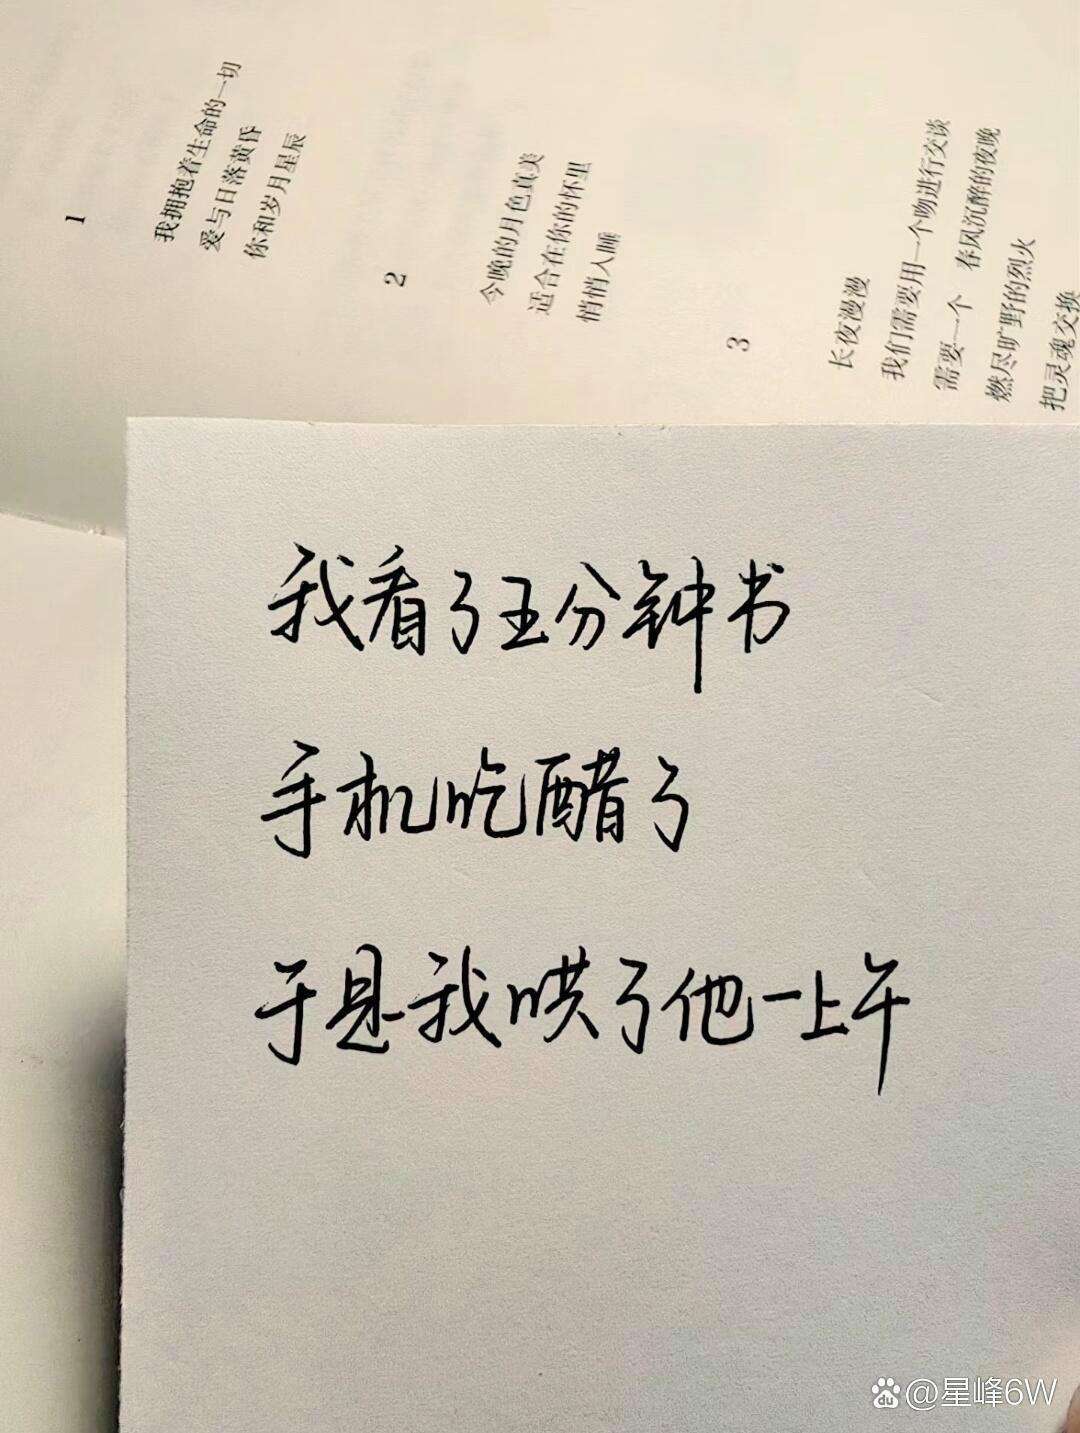 1
我拥抱着生命的一切
爱与日落黄昏
你和岁月星辰
2
今晚的月色真美
适合在你的怀里
悄悄入睡
3
长夜漫漫
我们需要用一个吻进行交谈
需要一个 春风沉醉的夜晚
燃尽旷野的烈火
把灵魂交换
我看了五分钟书
手机吃醋了
于是我哄了他一上午
du @星峰6W